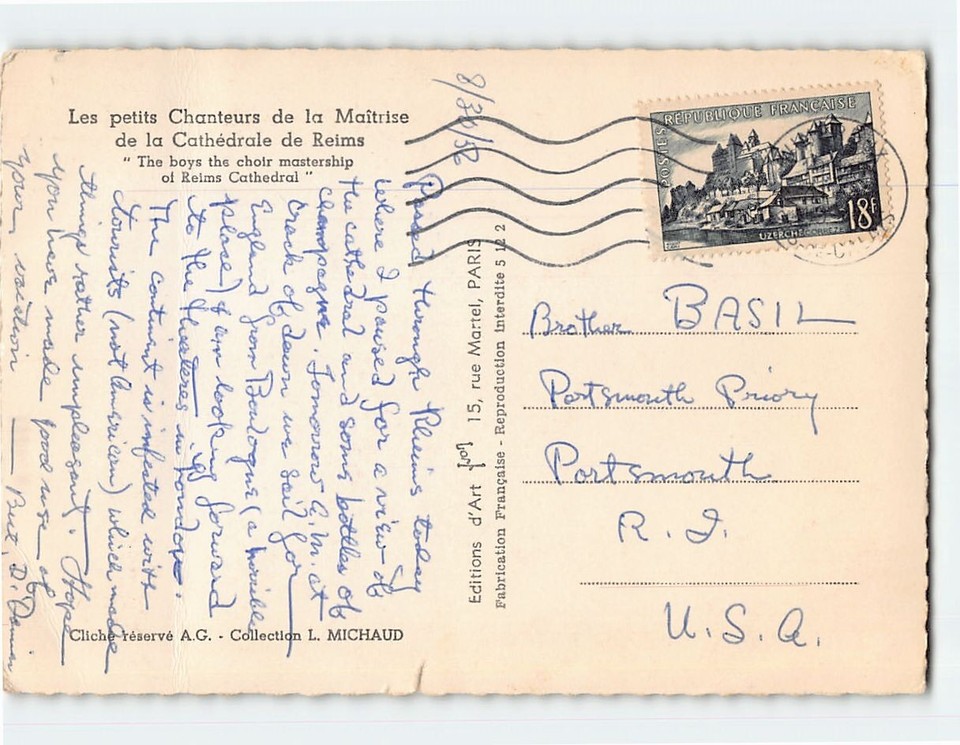 Les petits Chanteurs de la Maîtrise
de la Cathédrale de Reims
" The boys the choir mastership
of Reims Cathedral "
8/30/52
Passed through Rheims today
where I paused for a view of
the cathedral and some bottles of
champagne. Tomorrow A.M. at
crack of dawn we sail for
England from Boulogne (a horrible
place). I am looking forward
to the theatres in London.
The continent is infested with
tourists (not American) which made
things rather unpleasant. Hope
you have made good use of
your vacation — D. Damian
Cliché réservé A.G. - Collection L. MICHAUD
Editions d'Art 15, rue Martel, PARIS
Fabrication Française - Reproduction Interdite 5 12 2
POSTES RÉPUBLIQUE FRANÇAISE
18F
UZERCHE
Brother BASIL
Portsmouth Priory
Portsmouth
R. I.
U. S. A.